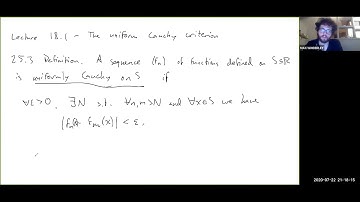 Lecture 18.1 - The uniform Cauchy criterion
25.3 Definition. A sequence (fn) of functions defined on S⊆R
is uniformly Cauchy on S if
∀ε>0, ∃N s.t. ∀n,m>N and ∀x∈S we have
|fn(x) - fm(x)| < ε.
2020-07-22 21:18:15